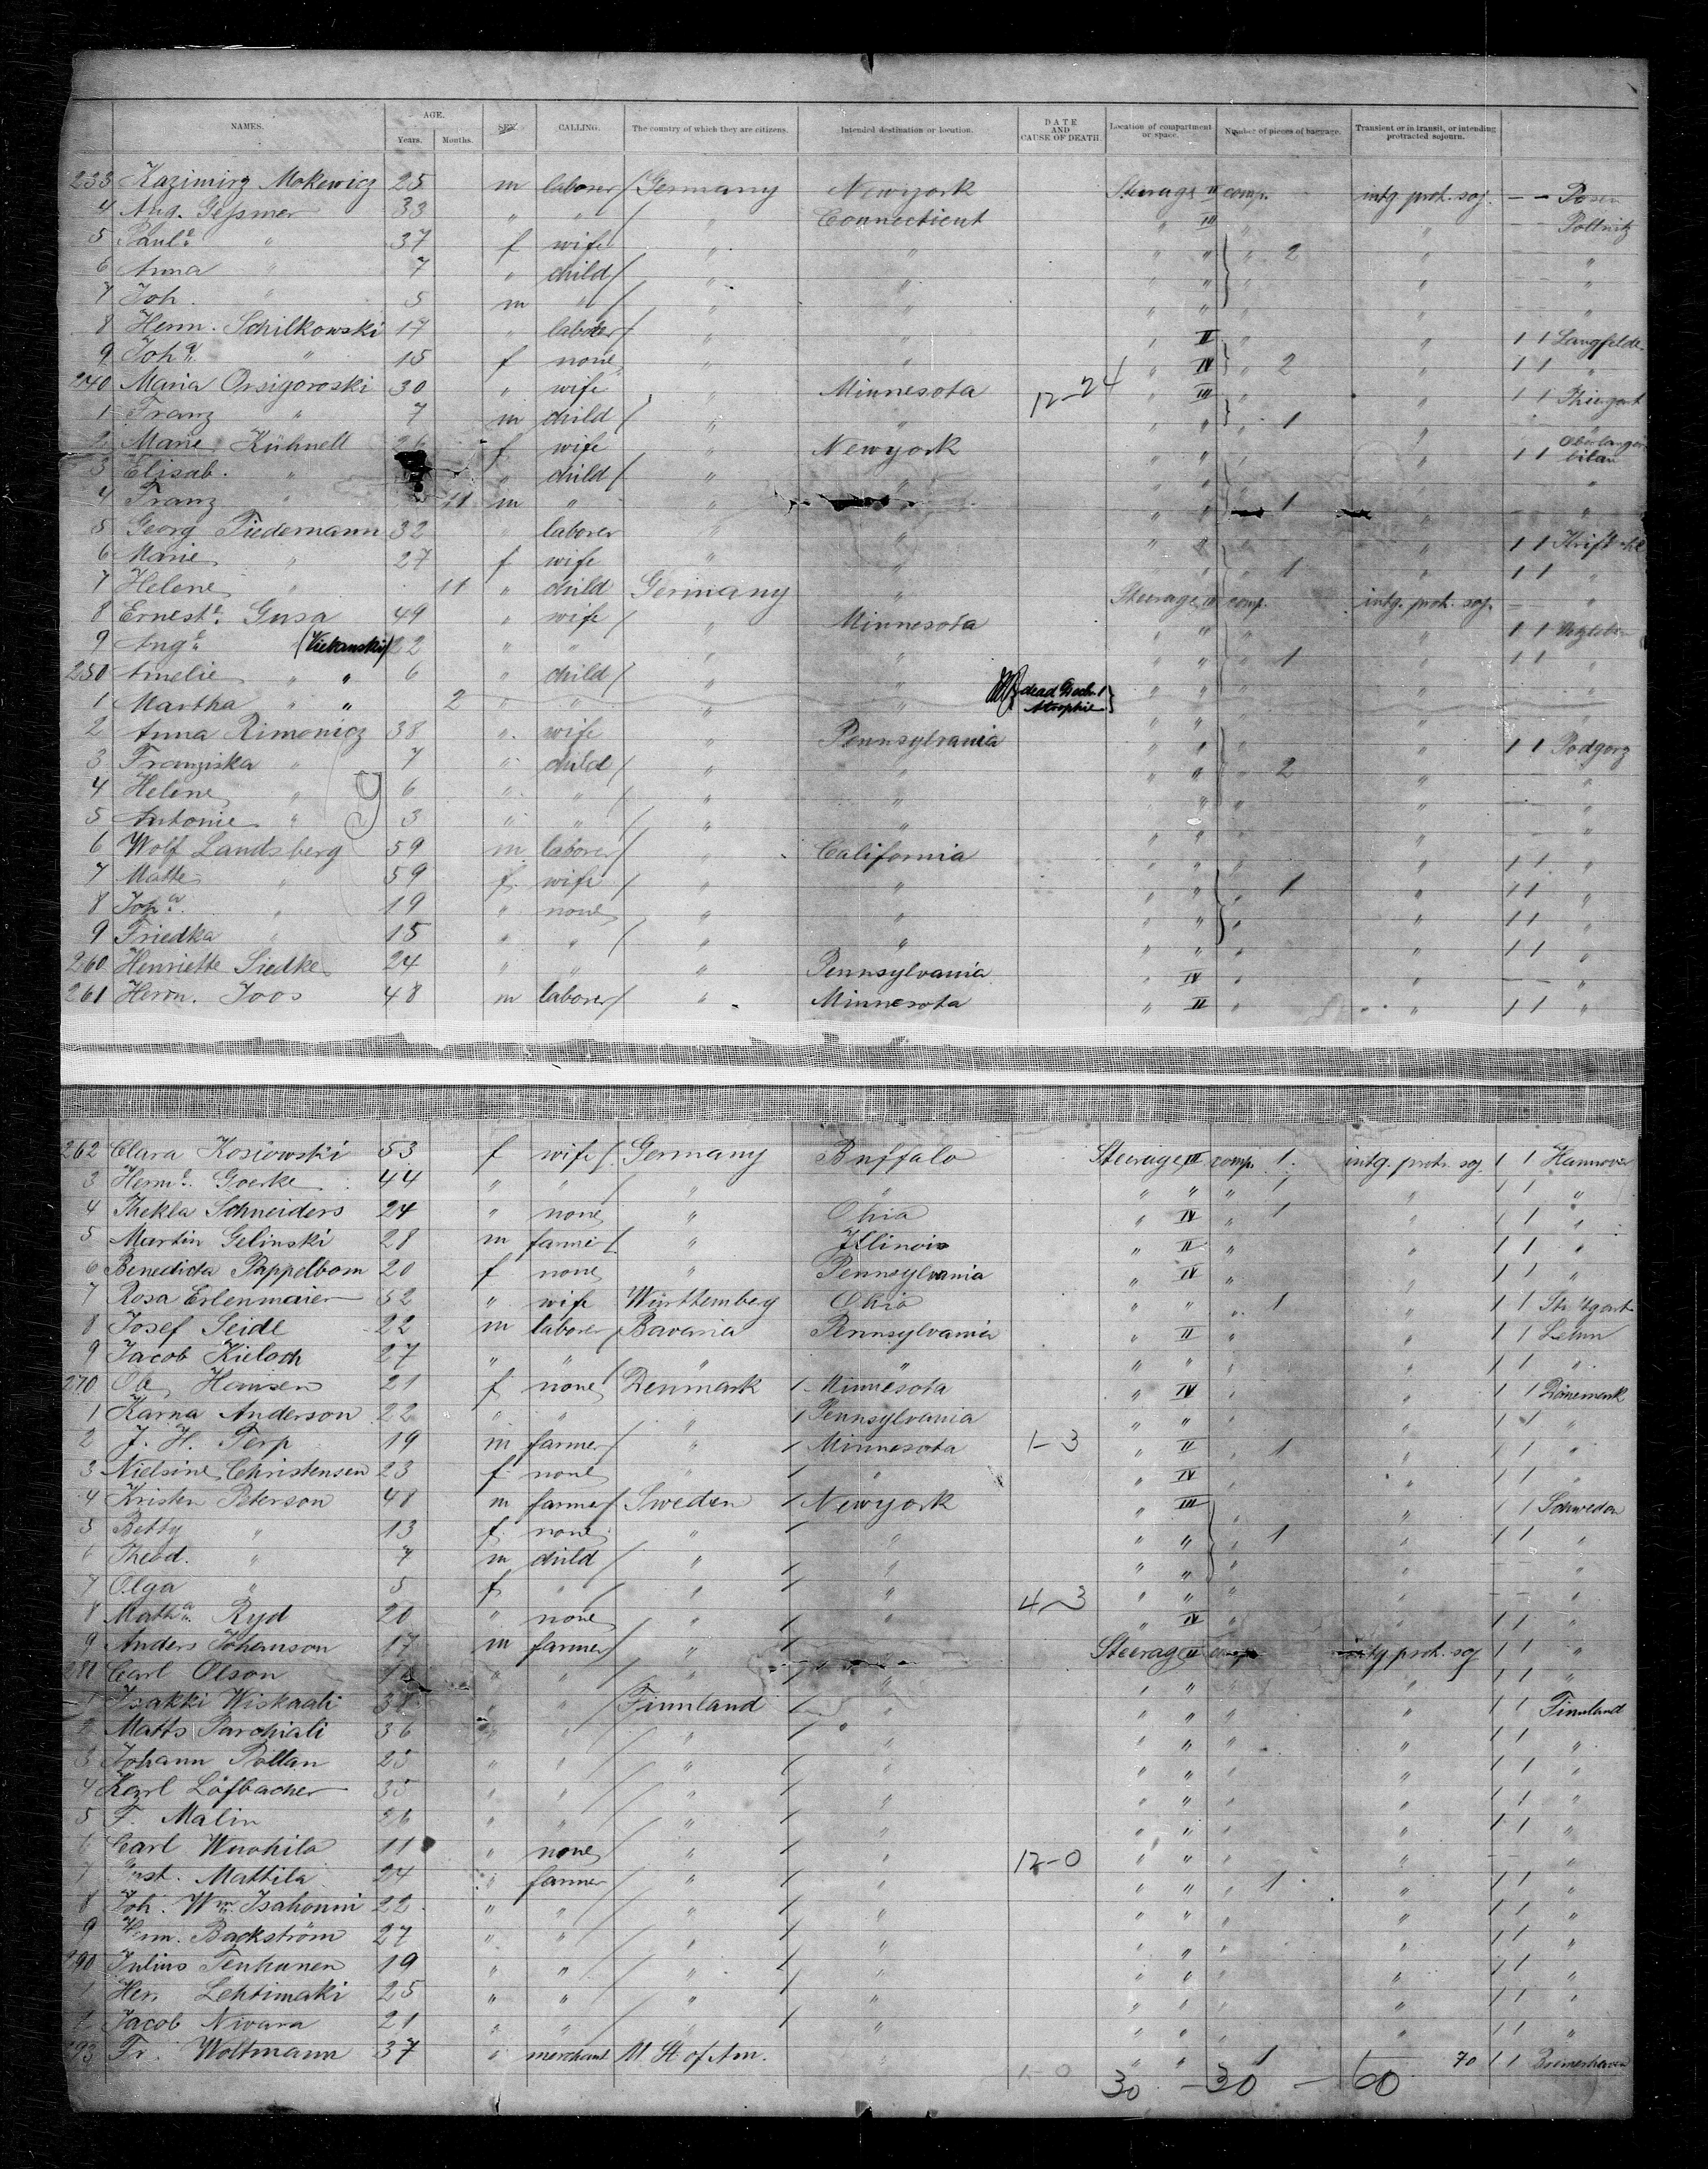 NAMES. AGE. Years. Months. SEX. CALLING. The country of which they are citizens. Intended destination or location. DATE AND CAUSE OF DEATH. Location of compartment or space. Number of pieces of baggage. Transient or in transit, or intending protracted sojourn.
233 Kazimirz Mokewicz 25 m laborer / Germany Newyork Steerage II comp. intg. prot. soj. — — Posen
4 Aug. Geßmer 33 " " / " Connecticut " III " " — — Pollnitz
5 Paule. " 37 f wife " " " " " 2 " "
6 Anna " 7 " child / " " " " " "
7 Joh. " 5 m " / " " " " " "
8 Herm. Schilkowski 17 " laborer / " " " II " " 1 1 Langfelde
9 Joha. " 15 f none " " " IV " 2 " 1 1 "
240 Maria Orsigoroski 30 " wife " Minnesota 12-24 " III " 1 1
1 Franz " 7 m child / " " " " " 1 " "
2 Marie Kühnelt 26 f wife " Newyork " " " " 1 1 Oberlangenbilau
3 Elisab. " " child / " " " " " "
4 Franz " 11 m " " " " 1 " "
5 Georg Tiedemann 32 " laborer " " " " " 1 1
6 Marie " 27 f wife " " " " 1 " 1 1 "
7 Helene " 11 " child Germany " Steerage II comp. intg. prot. soj. — "
8 Erneste. Gusa 49 " wife / " Minnesota " " " " 1 1
9 Auge. " (Viekanski) 22 " " " " " " " 1 " 1 1 "
250 Amelie " " 6 " child / " " " " " "
1 Martha " " 2 " " " " dead Decbr. 1 Atrophie " " " "
2 Anna Rimonicz 38 " wife " Pennsylvania " " " " 1 1 Podgorz
3 Franziska " 7 " child / " " " " " 2 " "
4 Helene " 6 " " / " " " " " " "
5 Antonie " 3 " " / " " " " " "
6 Wolf Landsberg 59 m laborer / " California " " " " 1 1 "
7 Matte " 59 f wife / " " " " " 1 " 1 1 "
8 Joha. " 19 " none " " " " " " 1 1 "
9 Friedka " 15 " " / " " " " " " 1 1 "
260 Henriette Siedke 24 " " " Pennsylvania " IV " " — "
261 Herm. Joos 48 m laborer / " Minnesota " II " " 1 1 "
262 Clara Kosiowski 53 f wife / Germany Buffalo Steerage III comp. 1 intg. prot. soj. 1 1 Hannover
3 Herme. Goerke 44 " " / " " " " " 1 " 1 1 "
4 Thekla Schneiders 24 " none " Ohio " IV " 1 " 1 1 "
5 Martin Gelinski 28 m farmer / " Illinois " II " " 1 1 "
6 Benedicta Pappelbom 20 f none " Pennsylvania " IV " " 1 1 "
7 Rosa Erlenmaier 52 " wife Württemberg Ohio " " " 1 " 1 1 Stuttgart
8 Josef Seidl 22 m laborer / Bavaria Pennsylvania " II " " 1 1 Lehm
9 Jacob Kieloch 27 " " / " " " " " " 1 1 "
270 Ole Hansen 21 f none Denmark / Minnesota " IV " " 1 1 Dänemark
1 Karna Anderson 22 " " " / Pennsylvania " " " " 1 1 "
2 J. H. Terp 19 m farmer / " / Minnesota 1-3 " II " 1 " 1 1 "
3 Nielsine Christensen 23 f none " / " " IV " " 1 1 "
4 Kristen Peterson 48 m farmer / Sweden / Newyork " III " " 1 1 Schweden
5 Betty " 13 f none " / " " " " 1 " 1 1 "
6 Theod. " 7 m child / " / " " " " " — "
7 Olga " 5 f " / " / " 4-3 " " " " — — "
8 Matha. Ryd 20 " none " / " " IV " " 1 1 "
9 Anders Johanson 17 m farmer / " / " Steerage II comp. intg. prot. soj. 1 1 "
281 Carl Olson " " / " / " " " " " 1 1 "
1 Isakki Wiskaali 38 " " / Finnland / " " " " " 1 1 Finnland
2 Matts Parchiali 36 " " / " / " " " " " 1 1 "
3 Johann Pollan 25 " " / " / " " " " " 1 1 "
4 Karl Löfbacher 35 " " / " / " " " " " 1 1 "
5 F. Malin 26 " " / " / " " " " " 1 1 "
6 Carl Wuohila 11 " none / " / " 12-0 " " " " — "
7 Gust. Mattila 24 " farmer / " / " " " " 1 " 1 1 "
8 Joh. Wm. Isahonni 22 " " / " / " " " " " 1 1 "
9 Herm. Backström 27 " " / " / " " " " " 1 1 "
290 Julius Tenhunen 19 " " / " / " " " " " 1 1 "
1 Her. Lehtimaki 25 " " / " / " " " " " 1 1 "
2 Jacob Nivara 21 " " / " / " " " " " 1 1 "
293 Fr. Woltmann 37 " merchant U. St. of Am. " 1-0 " " 1 70 1 1 Bremerhaven
30 — 30 — 60